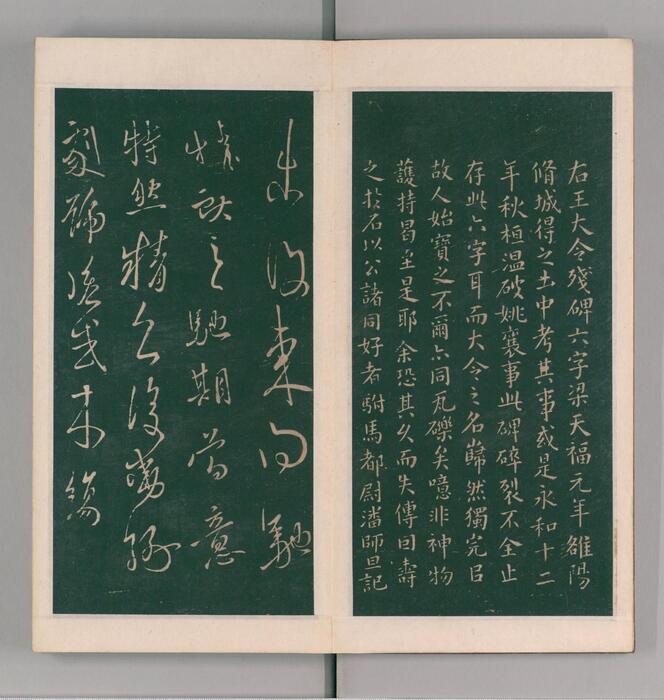 右王大令殘碑六字梁天福元年雒陽
脩城得之土中考其事或是永和十二
年秋桓温破姚襄事此碑碎裂不全止
存此六字耳而大令之名巋然獨完㠯
故人始寶之不爾亦同瓦礫矣噫非神物
護持曷至是耶余恐其久而失傳囙壽
之於石以公諸同好者駙馬都尉潘師旦記
東向馳
之馳期當意
特然精
劇